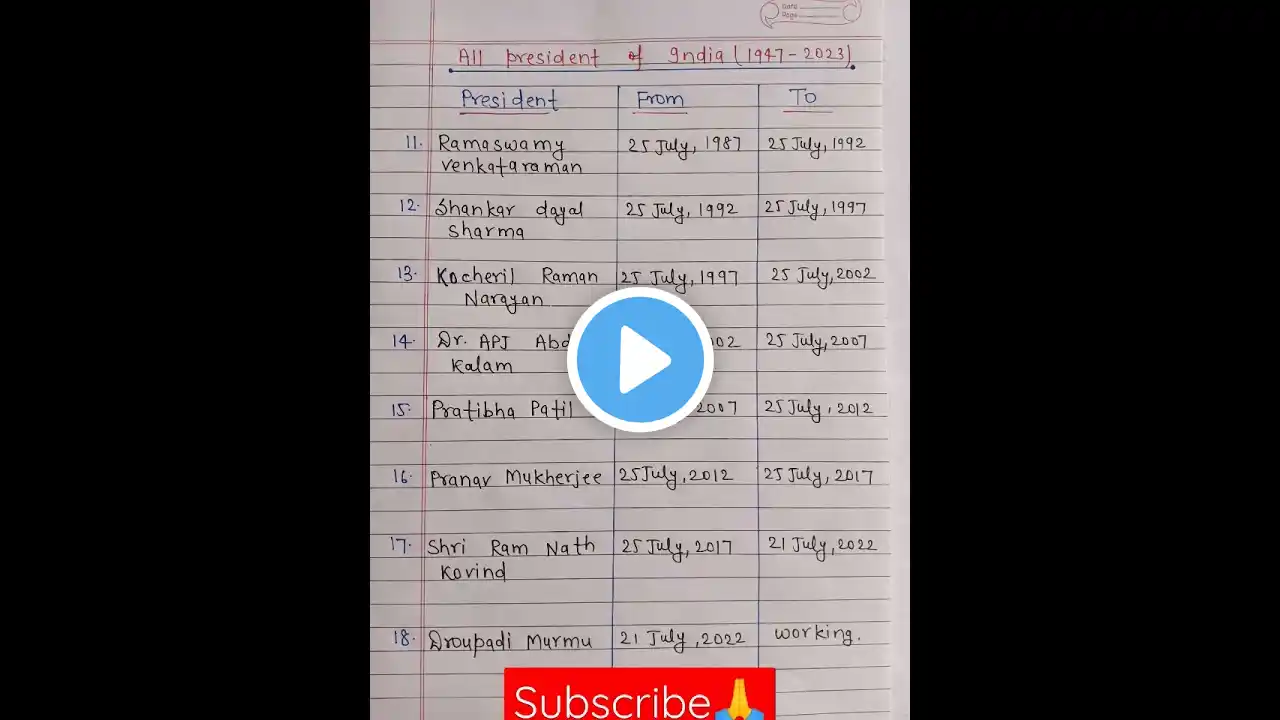 Date
Page
All president of India (1947-2023)
President From To
11. Ramaswamy 25 July, 1987 25 July, 1992
venkataraman
12. Shankar dayal 25 July, 1992 25 July, 1997
sharma
13. Kocheril Raman 25 July, 1997 25 July, 2002
Narayan
14. Dr. APJ 25 July, 2007
Kalam
15. Pratibha Patil 2007 25 July, 2012
16. Pranav Mukherjee 25 July, 2012 25 July, 2017
17. Shri Ram Nath 25 July, 2017 21 July, 2022
Kovind
18. Droupadi Murmu 21 July, 2022 working.
Subscribe